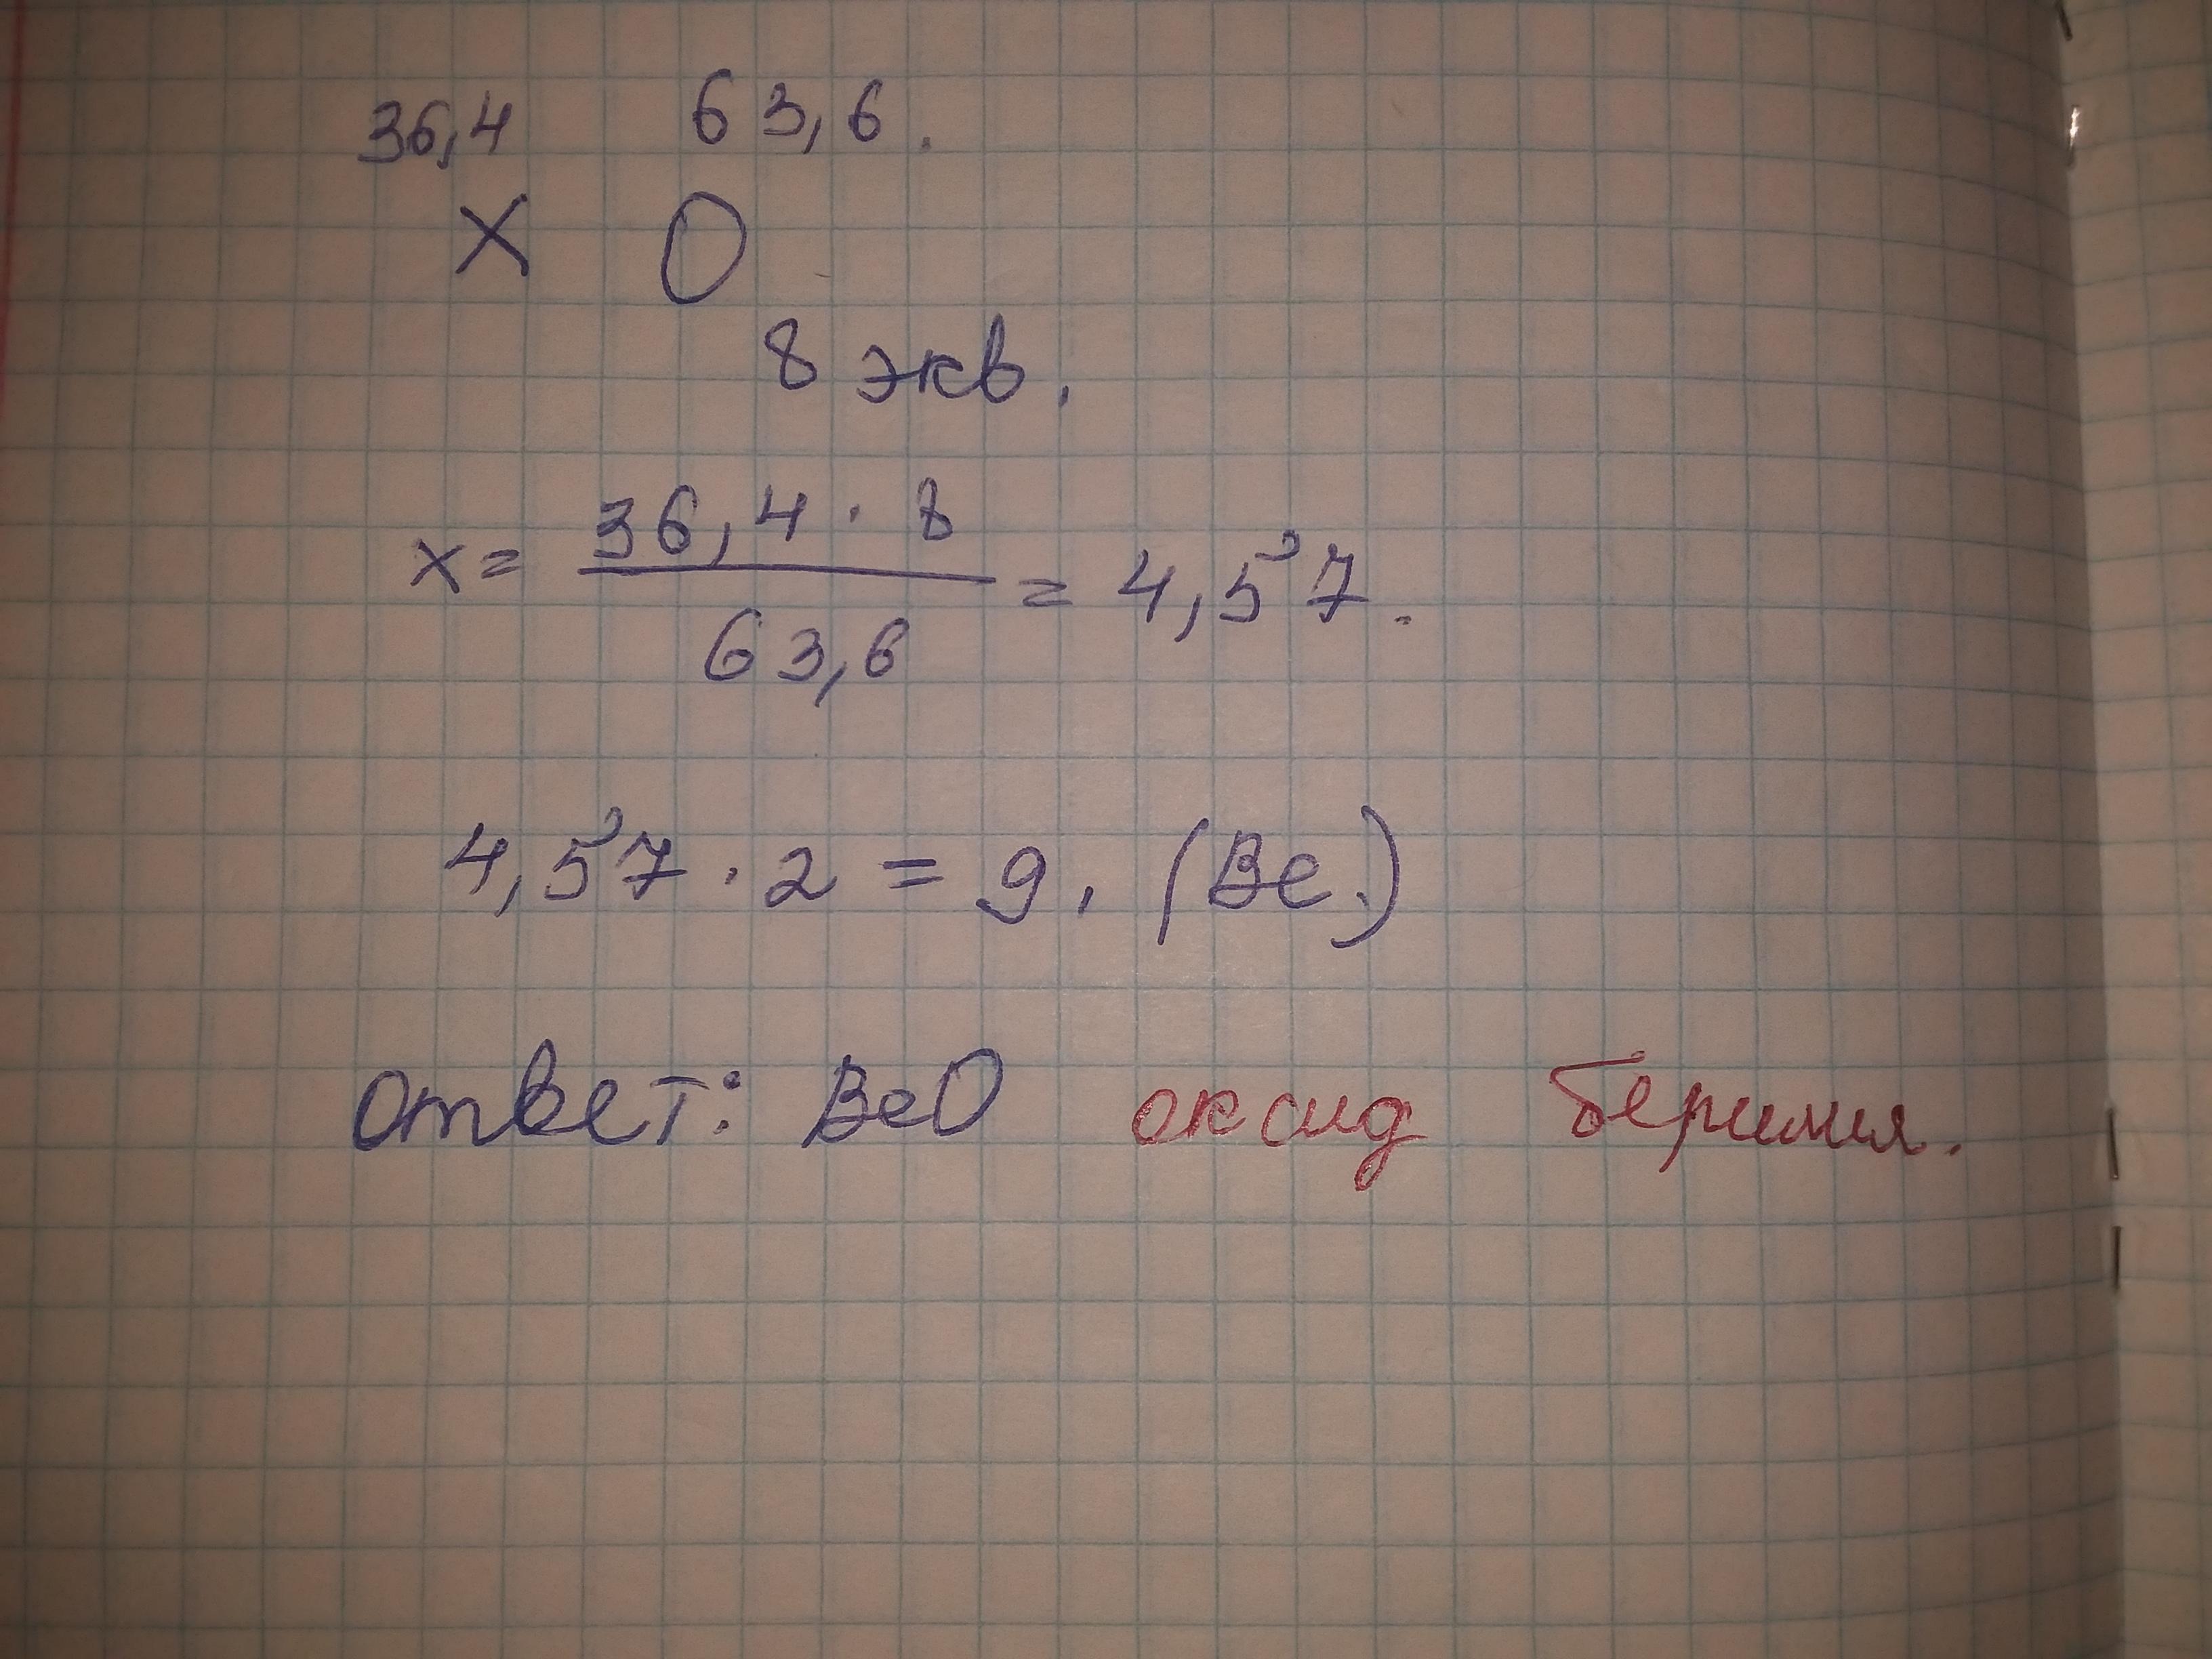 36,4 63,6.
X O
8 экв.
x = 36,4 · 8 / 63,6 = 4,57.
4,57 · 2 = 9. (Be.)
Ответ: BeO оксид берилия.